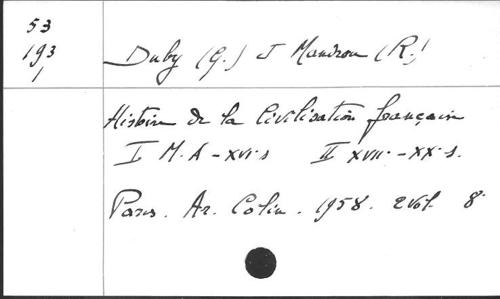 53
193
1
Duby (G.) & Mandrou (R.)
Histoire de la Civilisation française
I M.A - XVIs II XVII - XX s.
Paris. Ar. Colin. 1958. 2 Vol. 8°